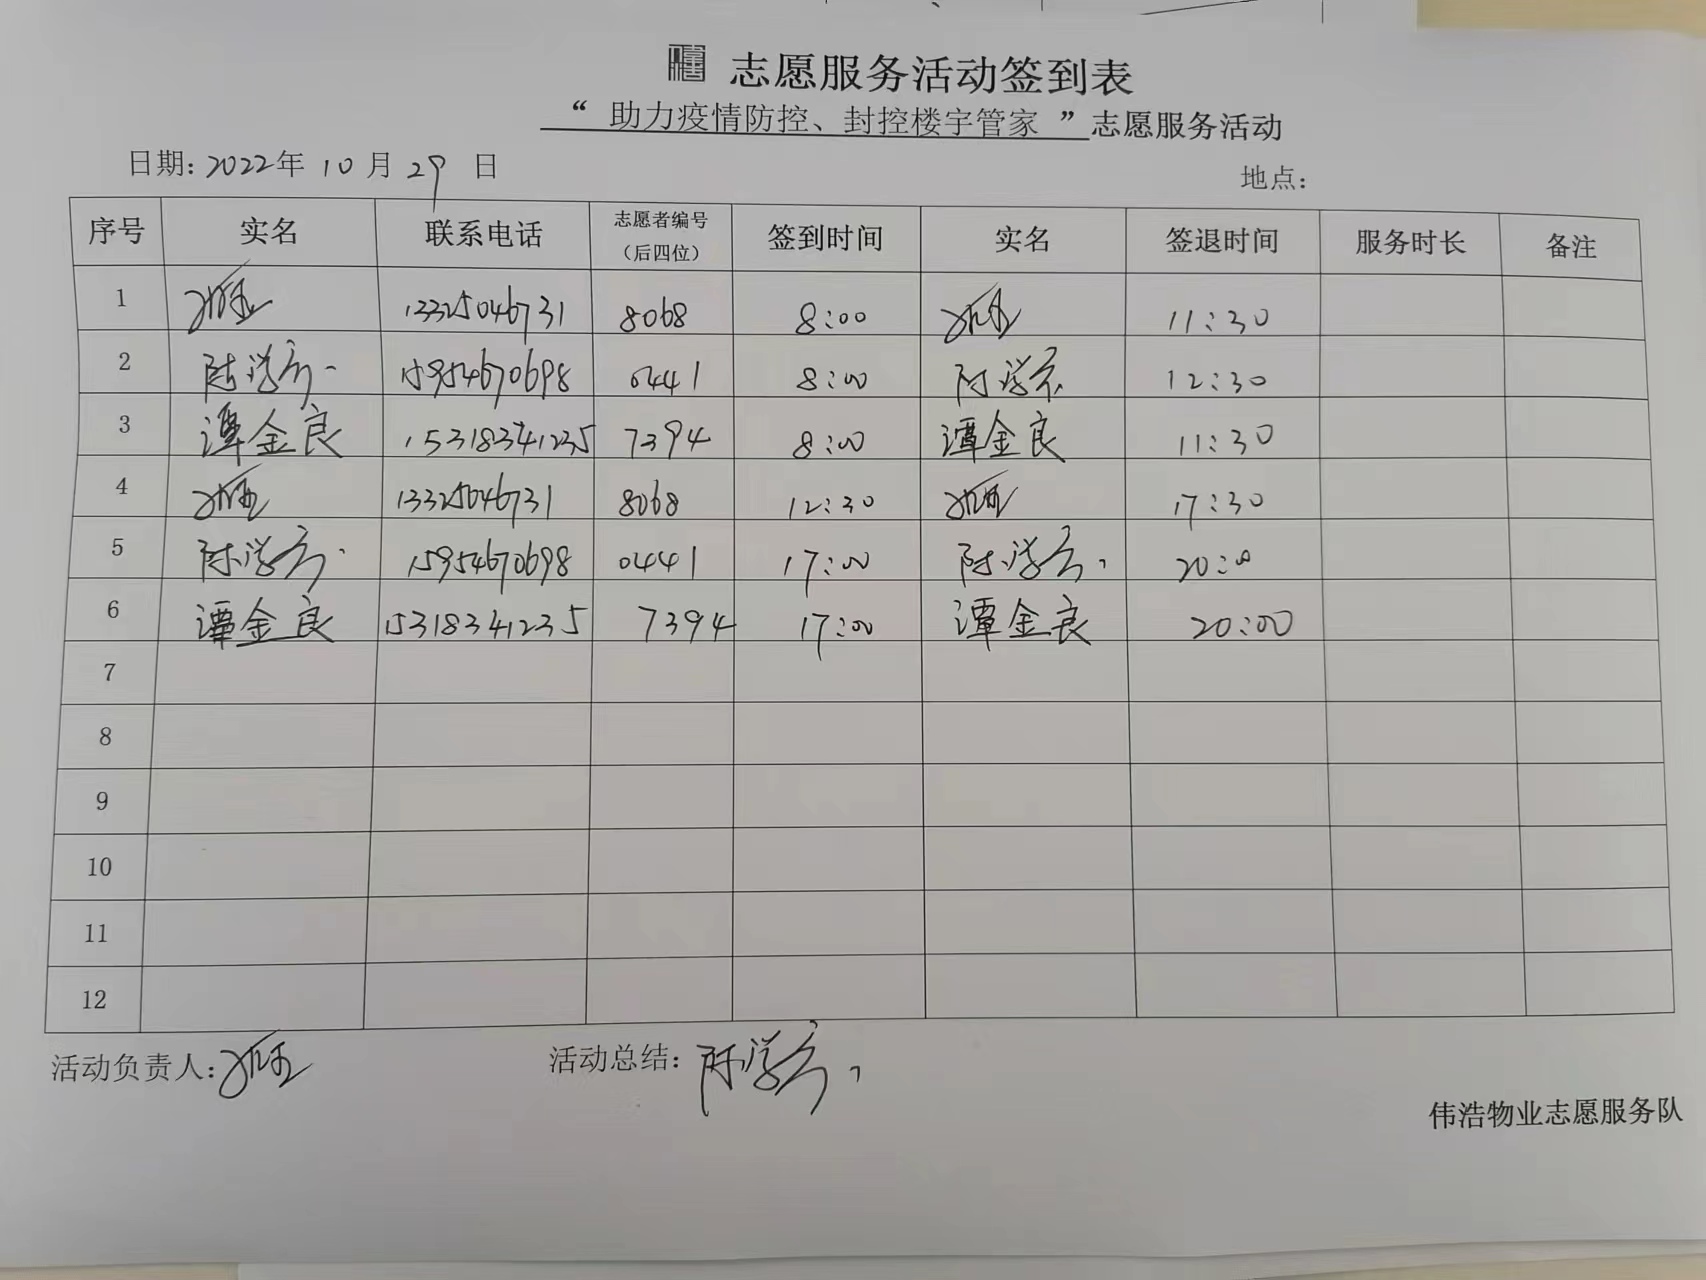 志愿服务活动签到表
“ 助力疫情防控、封控楼宇管家 ”志愿服务活动
日期: 2022年 10 月 29 日 地点:
序号 实名 联系电话 志愿者编号（后四位） 签到时间 实名 签退时间 服务时长 备注
1 13325046731 8068 8:00 11:30
2 陈学 15954670698 0441 8:00 陈学 12:30
3 谭金良 15318341235 7394 8:00 谭金良 11:30
4 13325046731 8068 12:30 17:30
5 陈学 15954670698 0441 17:00 陈学 20:00
6 谭金良 15318341235 7394 17:00 谭金良 20:00
7
8
9
10
11
12
活动负责人: 活动总结: 陈学
伟浩物业志愿服务队